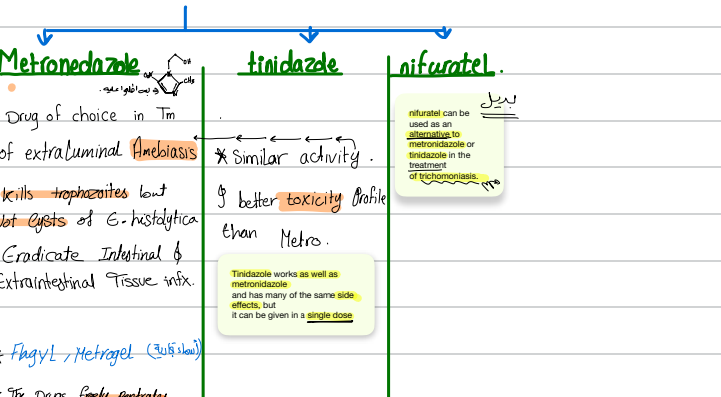 Metronedazole
OH
CH₃
Drug of choice in Tm
of extraluminal Amebiasis
Kills trophozoites but
Not Cysts of E-histolytica
Eradicate Intestinal &
Extraintestinal Tissue infx.
Flagyl, Metrogel
The Drug freely
tinidazole
* Similar activity.
& better toxicity Profile
than Metro.
Tinidazole works as well as
metronidazole
and has many of the same side
effects, but
it can be given in a single dose
nifuratel.
بديل
nifuratel can be
used as an
alternative to
metronidazole or
tinidazole in the
treatment
of trichomoniasis.